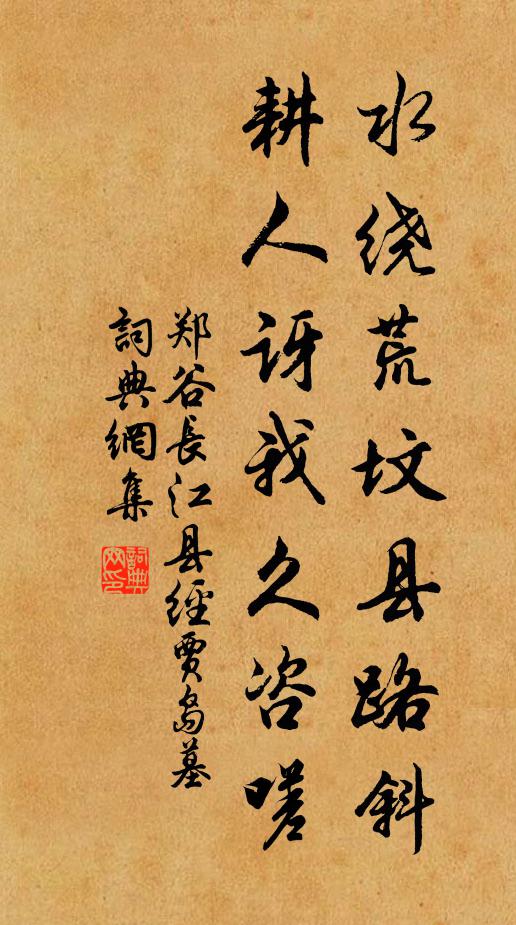 水绕荒坟县路斜
耕人讶我久咨嗟
郑谷長江县經賈岛墓
詞典網集
詞典网印